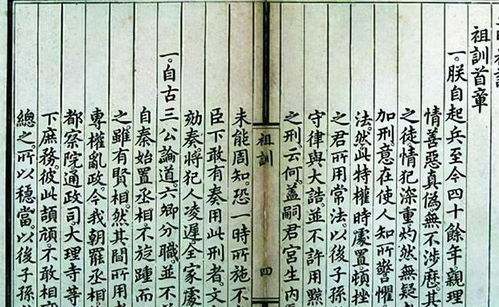 祖訓首章
一。朕自起兵至今四十餘年親理
情善惡真偽無不涉歷。
之徒情犯深重灼然無疑
加刑意在使人知所警懼
法然此特權時處置頓挫
之君所用常法。以後子孫
守律與大誥。並不許用黥
之刑。云何。蓋嗣君宮生內
祖訓 四
未能周知。恐一時所施不
臣下敢有奏用此刑者。文
劾奏。將犯人凌遲。全家處
一。自古三公論道。六卿分職。並不
自秦始置丞相。不旋踵而
之。雖有賢相。然其間所用
專權亂政。今我朝罷丞相
都察院通政司大理寺等
下庶務。彼此頡頏。不敢相
總之。所以穩當。以後子孫